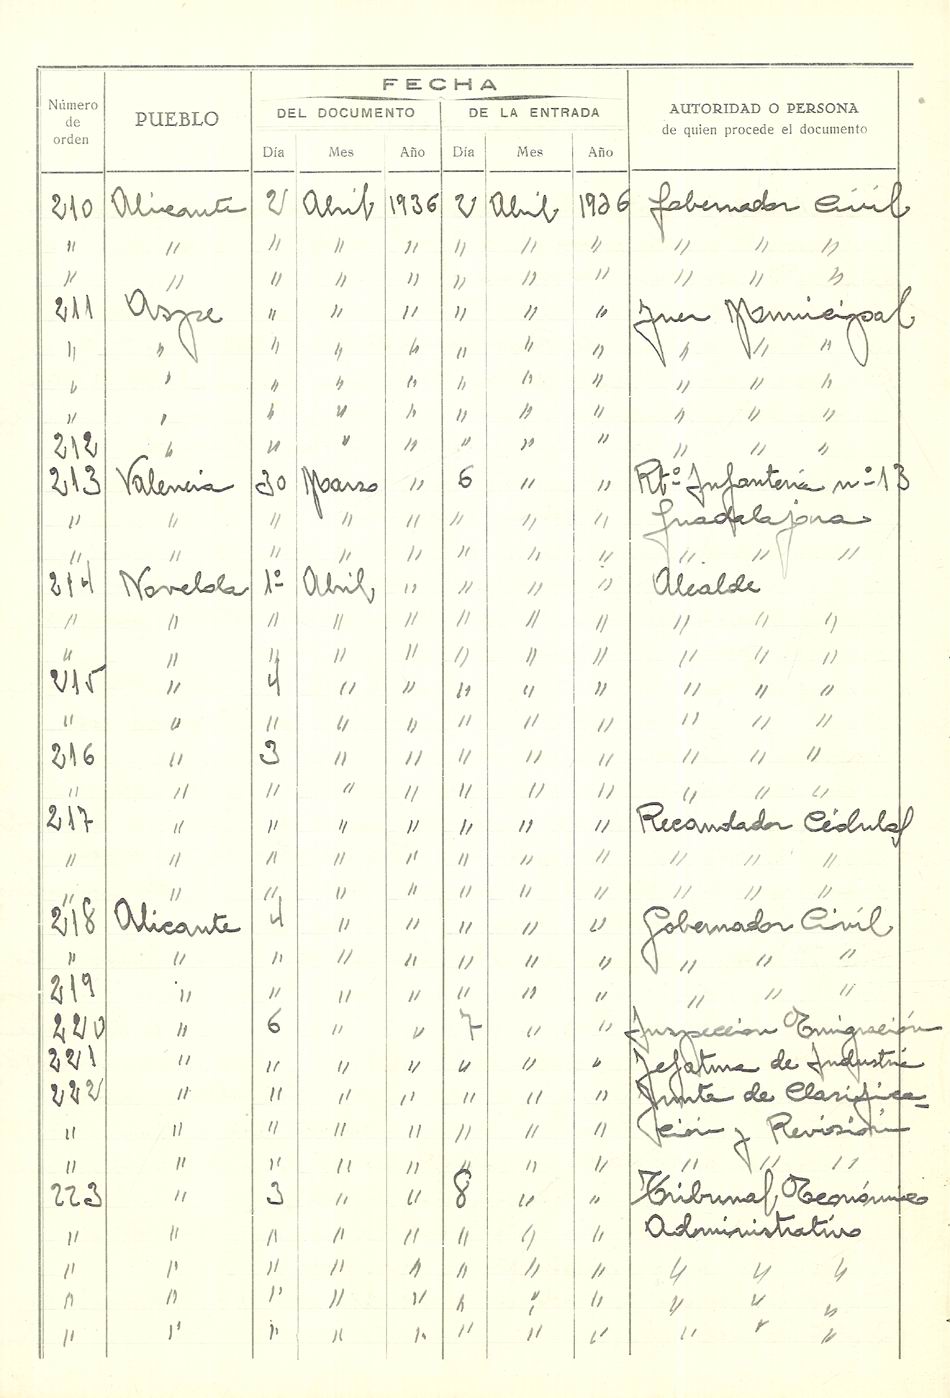 FECHA
Número de orden PUEBLO DEL DOCUMENTO DE LA ENTRADA AUTORIDAD O PERSONA
de quien procede el documento
Día Mes Año Día Mes Año
210 Alicante 2 Abril 1936 2 Abril 1936 Gobernador Civil
" " " " " " " " " " "
" " " " " " " " " " "
211 Aspe " " " " " " Juez Municipal
" " " " " " " " " " "
" " " " " " " " " " "
" " " " " " " " " " "
212 " " " " " " " " " "
213 Valencia 30 Marzo " 6 " " Rtº Infantería nº 13
" " " " " " " " Guadalajara
" " " " " " " " " " "
214 Novelda 1º Abril " " " " Alcalde
" " " " " " " " " " "
" " " " " " " " " " "
215 " 4 " " " " " " " "
" " " " " " " " " " "
216 " 3 " " " " " " " "
" " " " " " " " " " "
217 " " " " " " " Recaudador Cédulas
" " " " " " " " " " "
" " " " " " " " " " "
218 Alicante 4 " " " " " Gobernador Civil
" " " " " " " " " " "
219 " " " " " " " " " "
220 " 6 " " 7 " " Inspeccion Emigración
221 " " " " " " " Jefatura de Industria
222 " " " " " " " Junta de Clasifica-
" " " " " " " " ción y Revisión
" " " " " " " " " " "
223 " 3 " " 8 " " Tribunal Económico
" " " " " " " " Administrativo
" " " " " " " " " " "
" " " " " " " " " " "
" " " " " " " " " " "